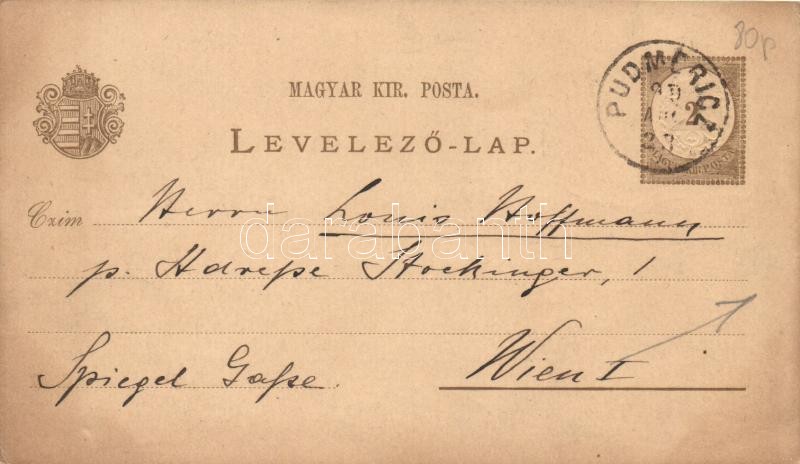 80p
MAGYAR KIR. POSTA.
LEVELEZŐ-LAP.
PUDMERICZ
2
MAGY. KIR. POSTA
Czim Herrn Louis Hoffmann
p. Adreße Stockinger, 1
Spiegel Gaße.
Wien I
darabanth